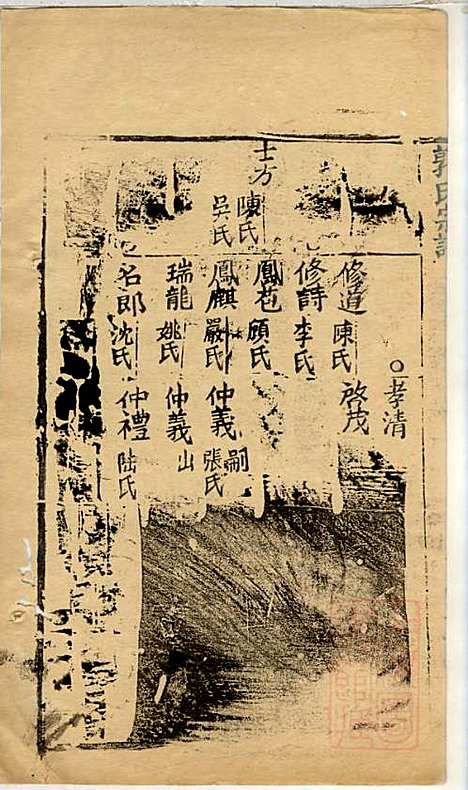 郭氏宗譜
士方 陳氏
吳氏
○孝清
修道 陳氏 啓茂
修詩 李氏
鳳苞 顧氏
鳳麒 嚴氏 仲義 嗣 張氏
瑞龍 姚氏 仲義 出
名郎 沈氏 仲禮 陆氏